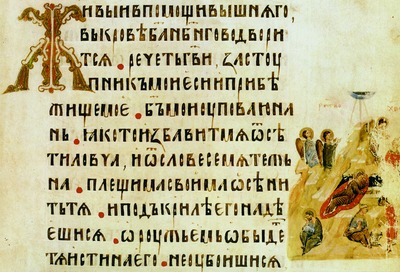 Живыивпомощивышнѧго,
вькровѣб҃ан҃бнговодвори
тсѧ. речетьг҃ви, застоу
пникъмоиесииприбѣ
жищемое. б҃ъмоиоуповаюна
нь. ꙗкотъизбавитмѧѿсѣ
тиловѧ, иѿсловесемѧтежь
на. плещмасвоимаѡсѣни
тьтѧ. иподъкрилѣегонадѣ
ешисѧ. ѡроужьемьѡбыде
тѧистинаего. неоубоишисѧ